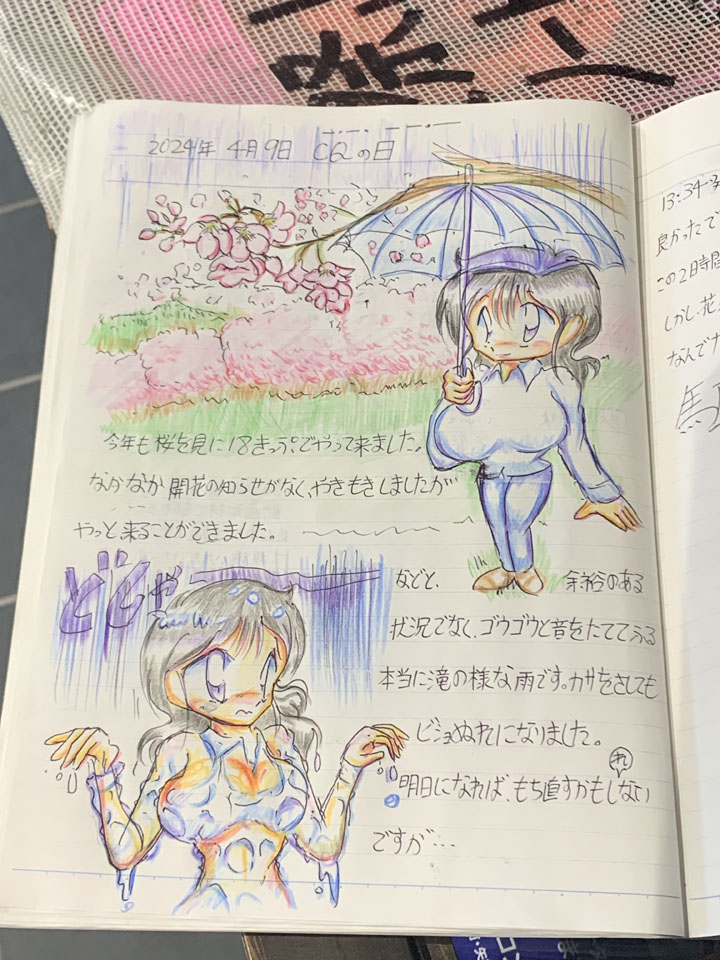 2024年 4月9日 CQの日
今年も桜を見に18きっぷでやって来ました。
なかなか開花の知らせがなく、やきもきしましたが
やっと来ることができました。
どじゃ
などと、余裕のある
状況でなく、ゴウゴウと音をたててふる
本当に滝の様な雨です。カサをさしても
ビショぬれになりました。
れ
明日になれば、もち直すかもしない
ですが…
13:34
良かったて
この2時間
しかし、花
なんで